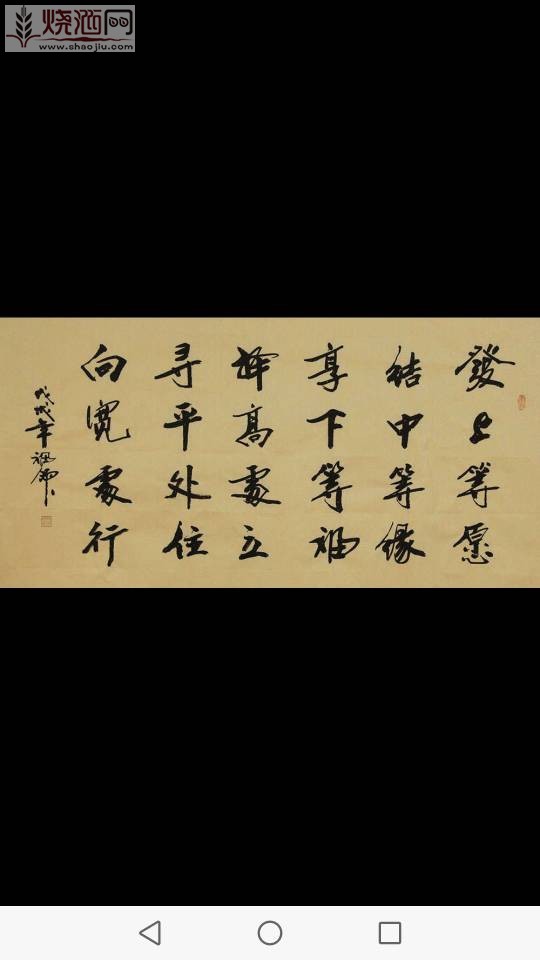 烧酒网
www.shaojiu.com
發上等愿
結中等缘
享下等福
择高處立
寻平处住
向宽處行
戊戌年